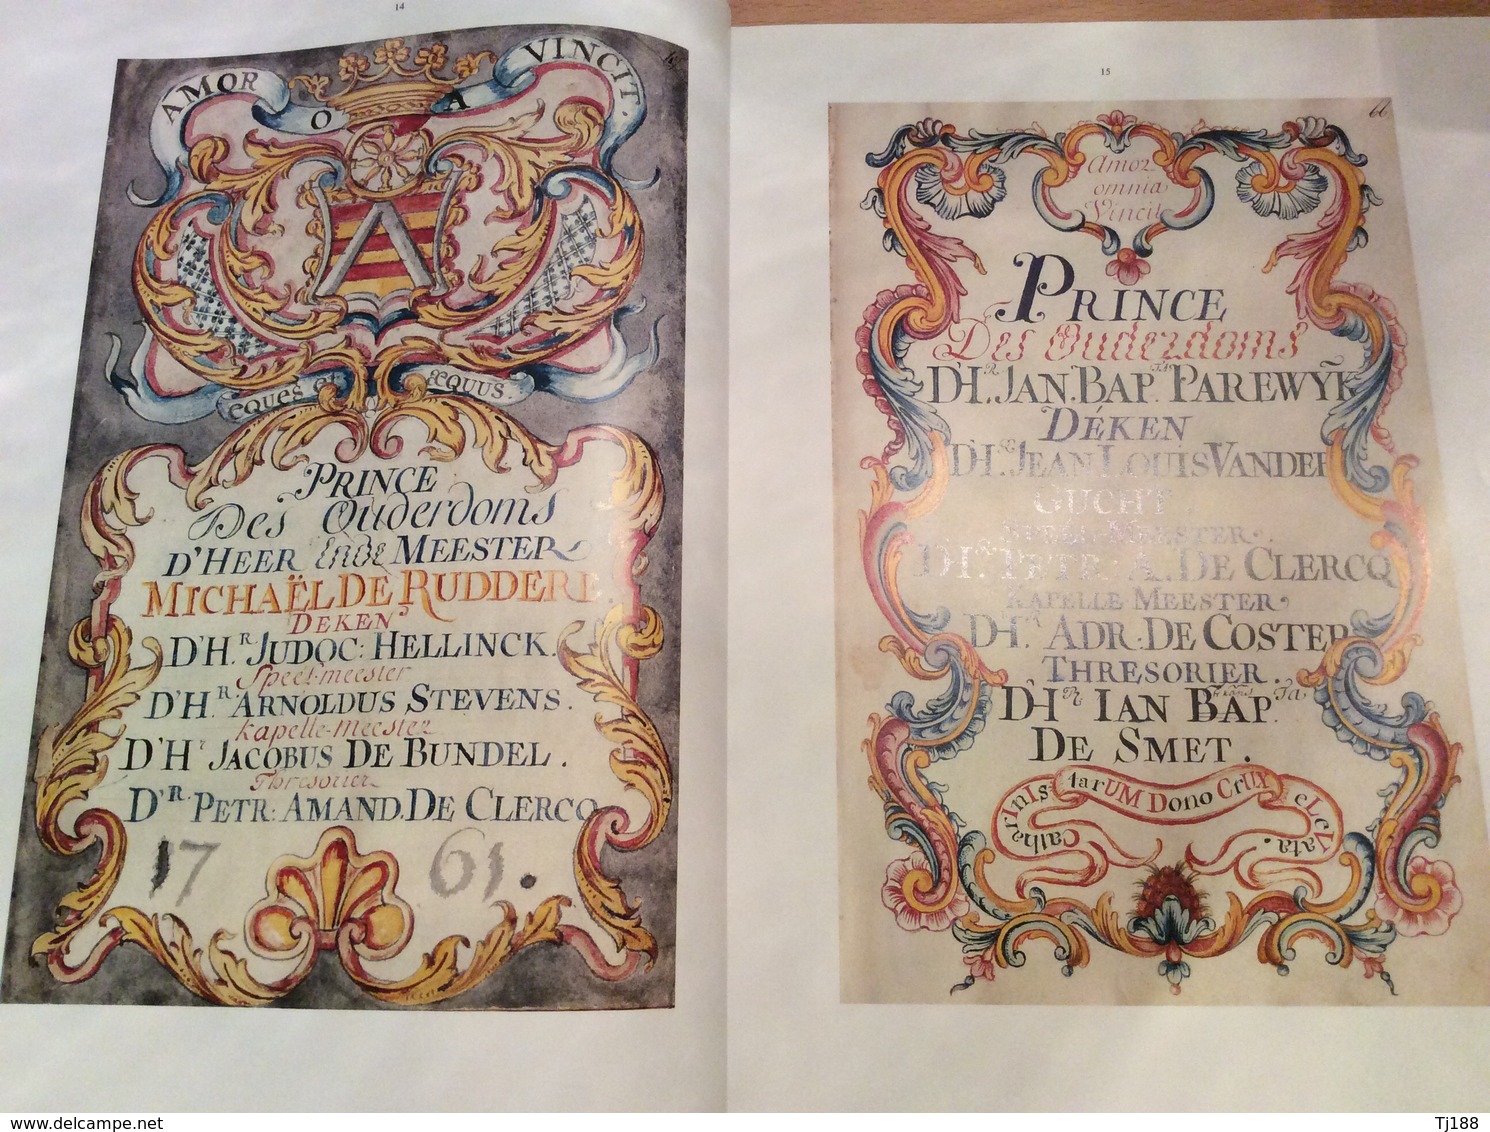 14
AMOR OA VINCIT.
eques et æquus.
PRINCE
Des Ouderdoms
D'HEER Ende MEESTER
MICHAËL DE RUDDERE.
DEKEN
D'H.R JUDOC: HELLINCK.
D'H.R ARNOLDUS STEVENS.
kapelle-Meester
D'Hr JACOBUS DE BUNDEL.
Thresorier
D'R. PETR: AMAND. DE CLERCQ
1761.
15
66
Amor
omnia
Vincit
PRINCE
Des Ouderdoms
D'H.R JAN. BAP.TA PAREWYK
DÉKEN
JEAN LOUIS VANDER
GUCHT.
MEESTER.
PETR: A. DE CLERCQ
KAPELLE-MEESTER
ADR: DE COSTER
THRESORIER.
IAN BAP.TA
DE SMET.
CatharInIstarUM Dono CrUX eLeVata.
delcampe.net
Tj188